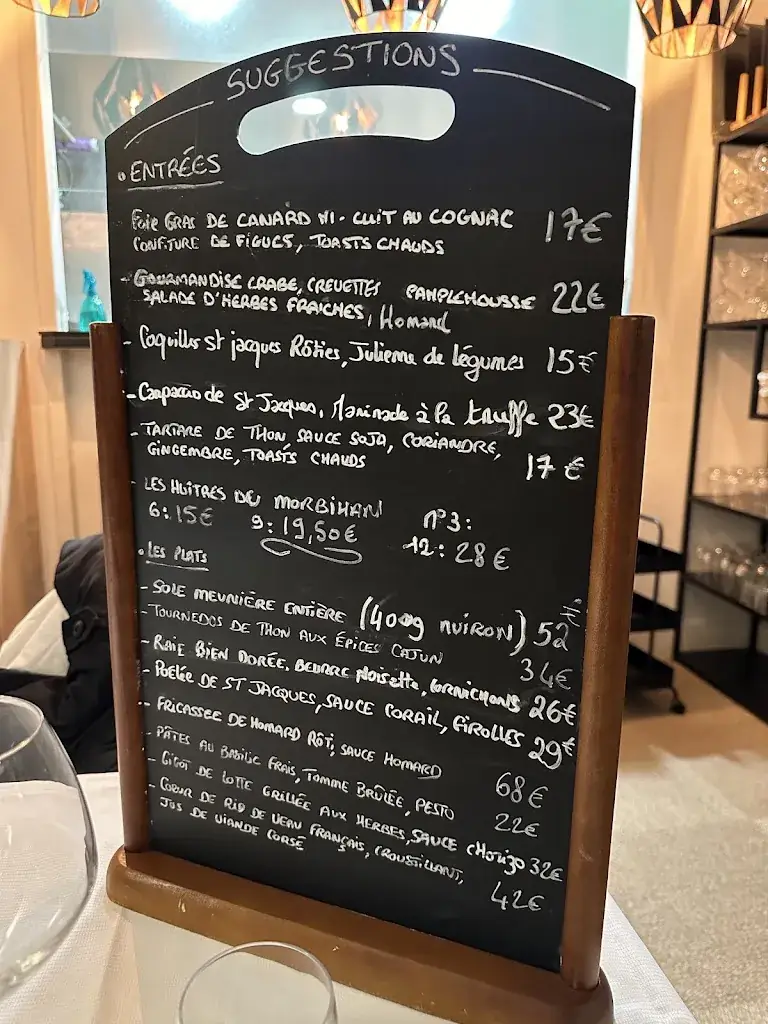 SUGGESTIONS
• ENTRÉES
Foie GRAS DE CANARD MI-CUIT AU COGNAC 17€
CONFITURE DE FIGUES, TOASTS CHAUDS
- GOURMANDISE CRABE, CREVETTES PAMPLEMOUSSE 22€
SALADE D'HERBES FRAICHES, Homard
- Coquilles st jacques Rôties, Julienne de légumes 15€
- Carpaccio de St Jacques, Marinade à la truffe 23€
- TARTARE DE THON SAUCE SOJA, CORIANDRE,
GINGEMBRE, TOASTS CHAUDS 17€
- LES HUÎTRES DU MORBIHAN n°3:
6: 15€ 9: 19,50€ 12: 28€
• LES PLATS
- SOLE MEUNIÈRE ENTIÈRE (400g NUIRON) 52€
- TOURNEDOS DE THON AUX ÉPICES CAJUN 34€
- RAIE BIEN DORÉE, BEURRE Noisette, CORNICHONS 26€
- POÊLÉE DE ST JACQUES, SAUCE CORAIL, GIROLLES 29€
- FRICASSEE DE HOMARD RÔT, SAUCE HOMARD 68€
- PÂTES AU BASILIC FRAIS, TOMME BRÛLÉE, PESTO 22€
- GIGOT DE LOTTE GRILLÉE AUX HERBES, SAUCE CHorizo 32€
- COEUR DE RID DE VEAU FRANÇAIS, CROUSTILLANT,
JUS DE VIANDE CORSÉ 42€